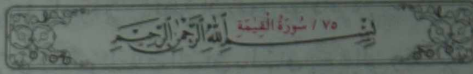 ٧٥ / سُورَةُ الْقِيٰمَةِ
بِسْمِ اللّٰهِ الرَّحْمٰنِ الرَّحِيمِ